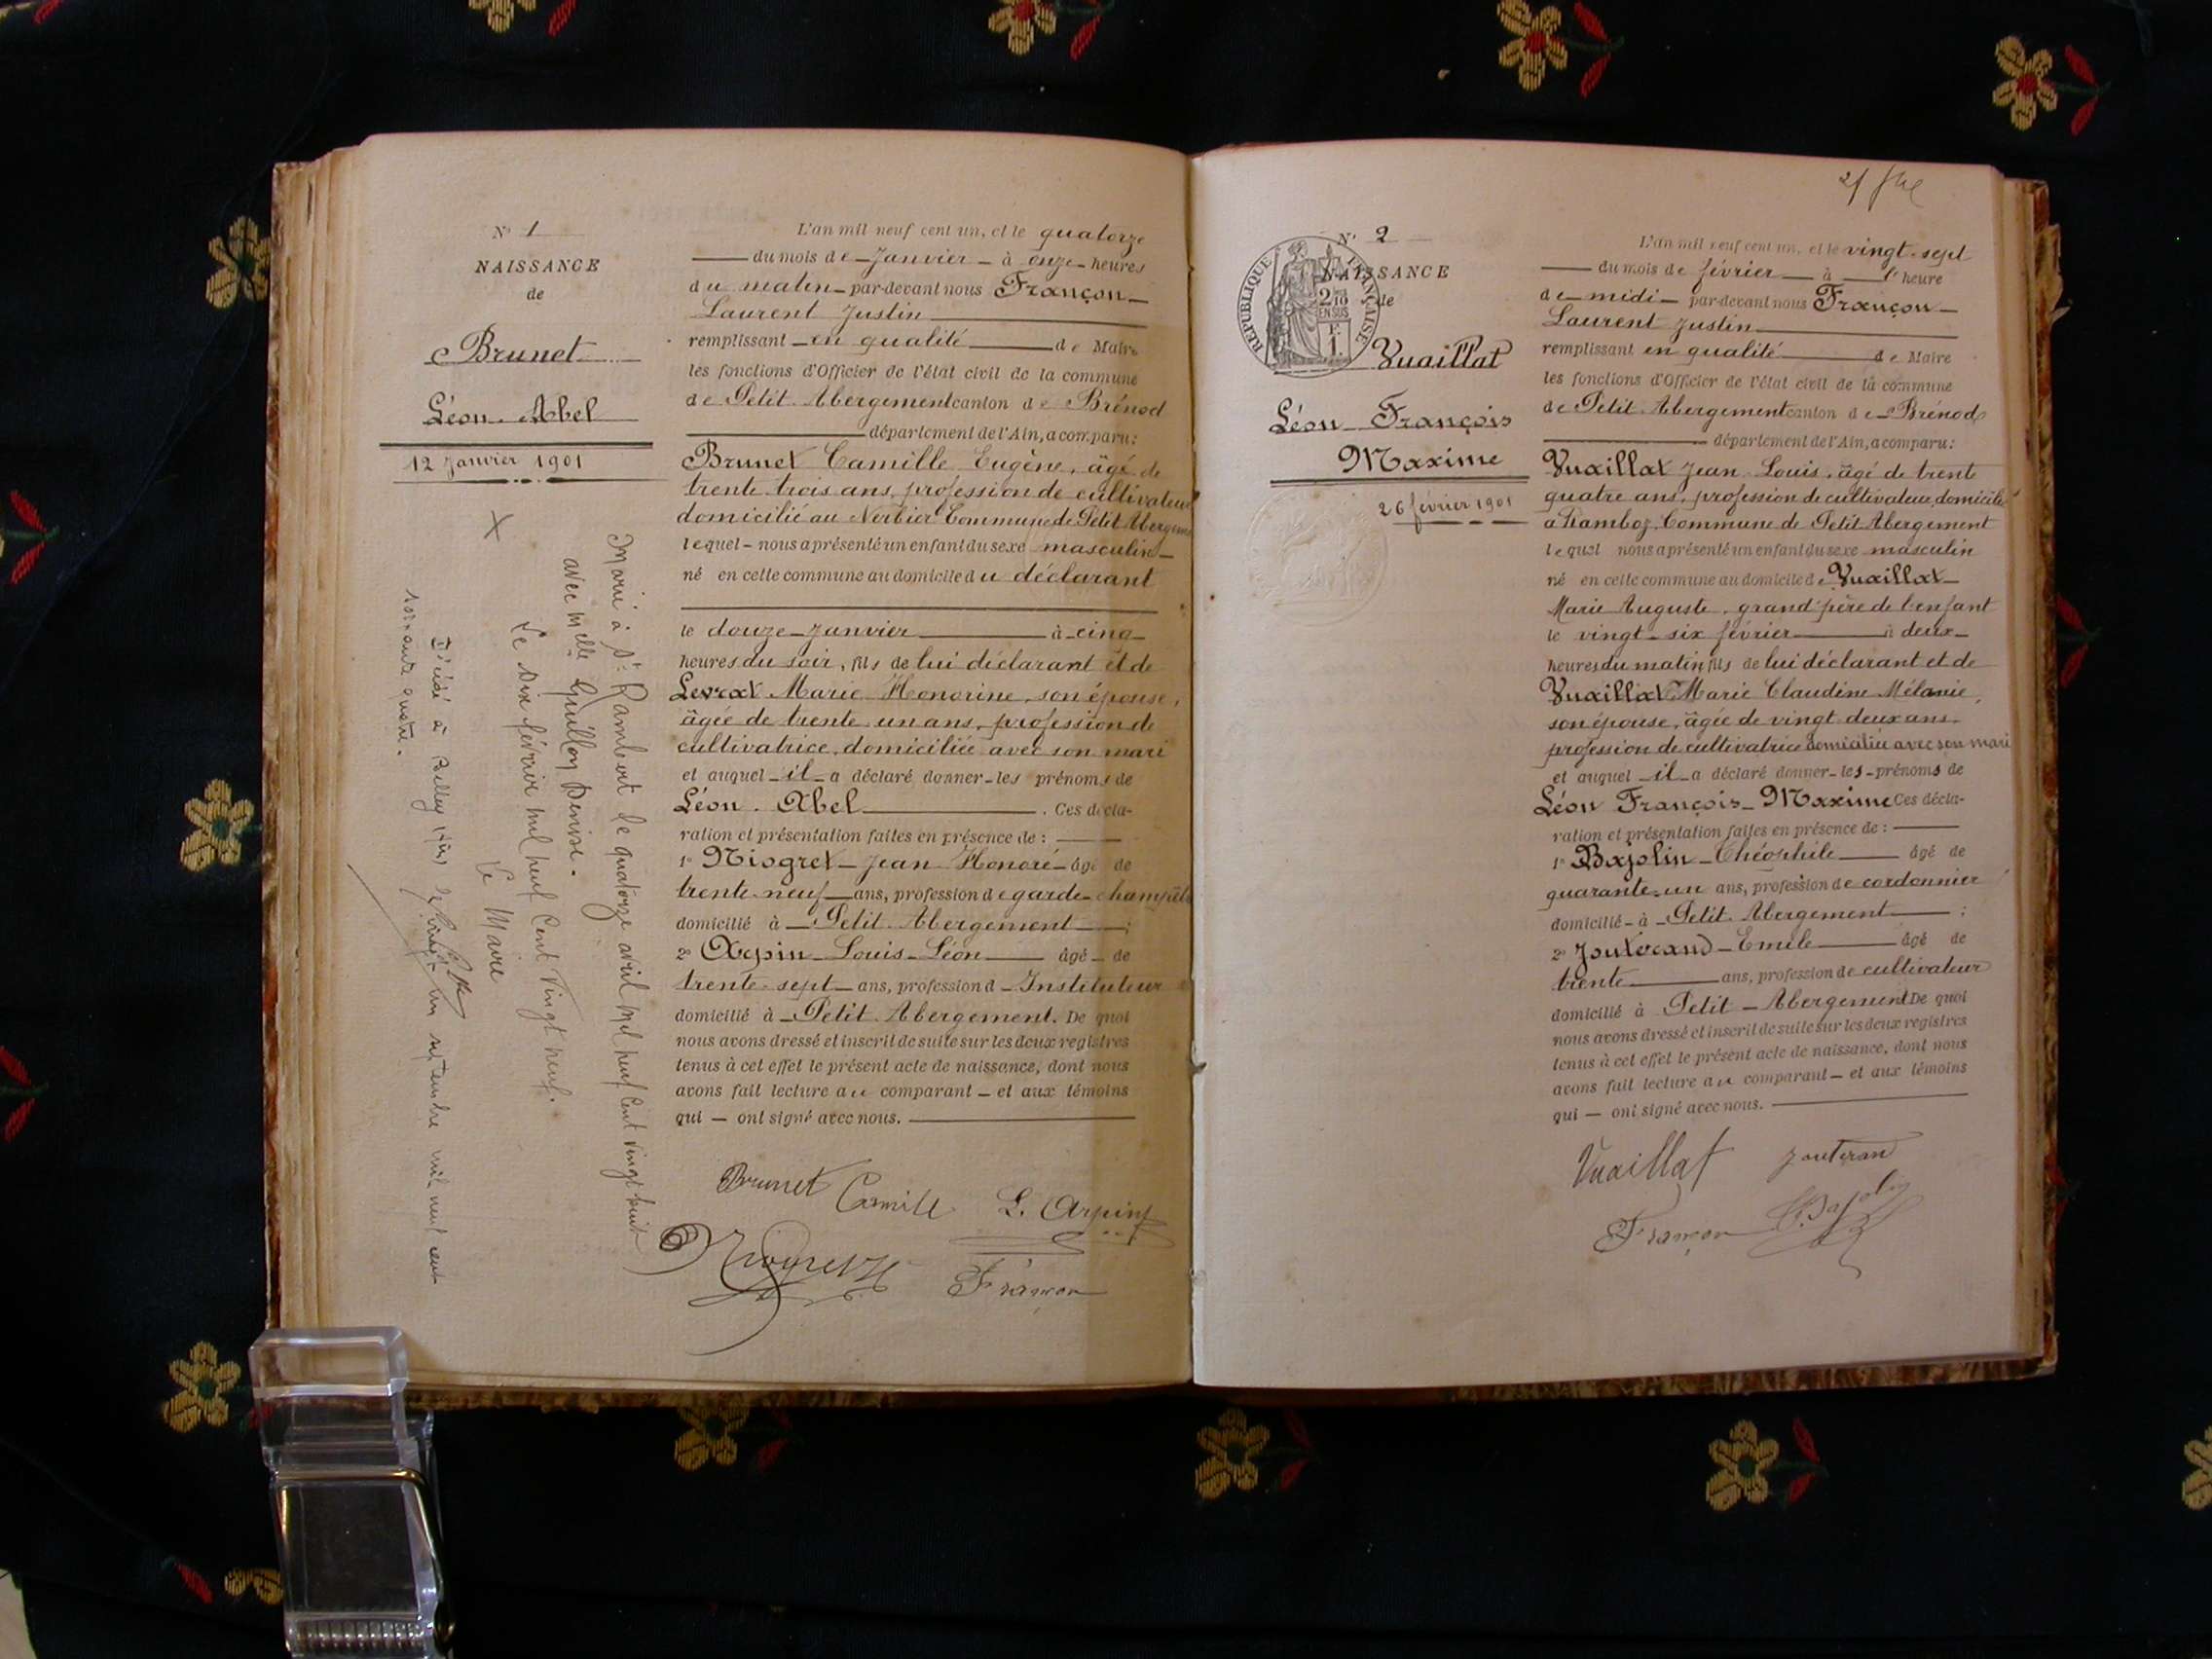 N° 1
NAISSANCE
de
Brunet
Léon Abel
12 Janvier 1901
L'an mil neuf cent un, et le quatorze
du mois de Janvier à onze heures
du matin par-devant nous Françon
Laurent Justin
remplissant en qualité de Maire
les fonctions d'Officier de l'état civil de la commune
de Petit Abergement canton de Brénod
département de l'Ain, a comparu :
Brunet Camille Eugène, âgé de
trente trois ans, profession de cultivateur
domicilié au Nerbier Commune de Petit Abergement
lequel nous a présenté un enfant du sexe masculin
né en cette commune au domicile du déclarant
le douze Janvier à cinq
heures du soir, fils de lui déclarant et de
Levrat Marie Honorine, son épouse,
âgée de trente un ans, profession de
cultivatrice, domiciliée avec son mari
et auquel il a déclaré donner les prénoms de
Léon Abel. Ces décla-
ration et présentation faites en présence de :
1° Niogret Jean Honoré âgé de
trente-neuf ans, profession de garde-champêtre
domicilié à Petit Abergement ;
2° Arpin Louis Léon âgé de
trente-sept ans, profession d Instituteur
domicilié à Petit Abergement. De quoi
nous avons dressé et inscrit de suite sur les deux registres
tenus à cet effet le présent acte de naissance, dont nous
avons fait lecture au comparant et aux témoins
qui ont signé avec nous.
Brunet Camille L. Arpin
Niogret JH Françon
Marié à St Rambert le quatorze avril mil neuf cent vingt huit
avec Melle Guillon Denise.
Le dix février mil neuf cent vingt neuf.
Le Maire
Décédé à Belley (Ain) le vingt un septembre mil neuf cent
soixante quatre.
N° 2
NAISSANCE
de
RÉPUBLIQUE FRANÇAISE
2/10
EN SUS
Vuaillat
Léon François
Maxime
26 février 1901
L'an mil neuf cent un, et le vingt-sept
du mois de février à heure
de midi par-devant nous Françon
Laurent Justin
remplissant en qualité de Maire
les fonctions d'Officier de l'état civil de la commune
de Petit Abergement canton de Brénod
département de l'Ain, a comparu :
Vuaillat Jean Louis, âgé de trente
quatre ans, profession de cultivateur, domicilié
à Ramboz, Commune de Petit Abergement
lequel nous a présenté un enfant du sexe masculin
né en cette commune au domicile de Vuaillat
Marie Auguste, grand'père de l'enfant
le vingt-six février à deux
heures du matin fils de lui déclarant et de
Vuaillat Marie Claudine Mélanie,
son épouse, âgée de vingt deux ans,
profession de cultivatrice domiciliée avec son mari
et auquel il a déclaré donner les prénoms de
Léon François Maxime Ces décla-
ration et présentation faites en présence de :
1° Bajolin Théophile âgé de
quarante-un ans, profession de cordonnier
domicilié à Petit Abergement ;
2° Jouterand Emile âgé de
trente ans, profession de cultivateur
domicilié à Petit Abergement De quoi
nous avons dressé et inscrit de suite sur les deux registres
tenus à cet effet le présent acte de naissance, dont nous
avons fait lecture au comparant et aux témoins
qui ont signé avec nous.
Vuaillat Jouteran
Françon